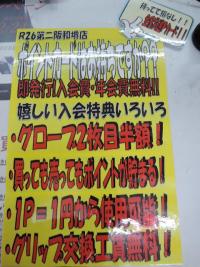 持ってて損なし!!
R26第二阪和堺店
ポイントカードはお持ちですか??
即発行!入会費・年会費無料!!
嬉しい入会特典いろいろ
・グローブ2枚目半額!
買っても売ってもポイントが貯まる!
・1P=1円から使用可能!
・グリップ交換工賃無料!!